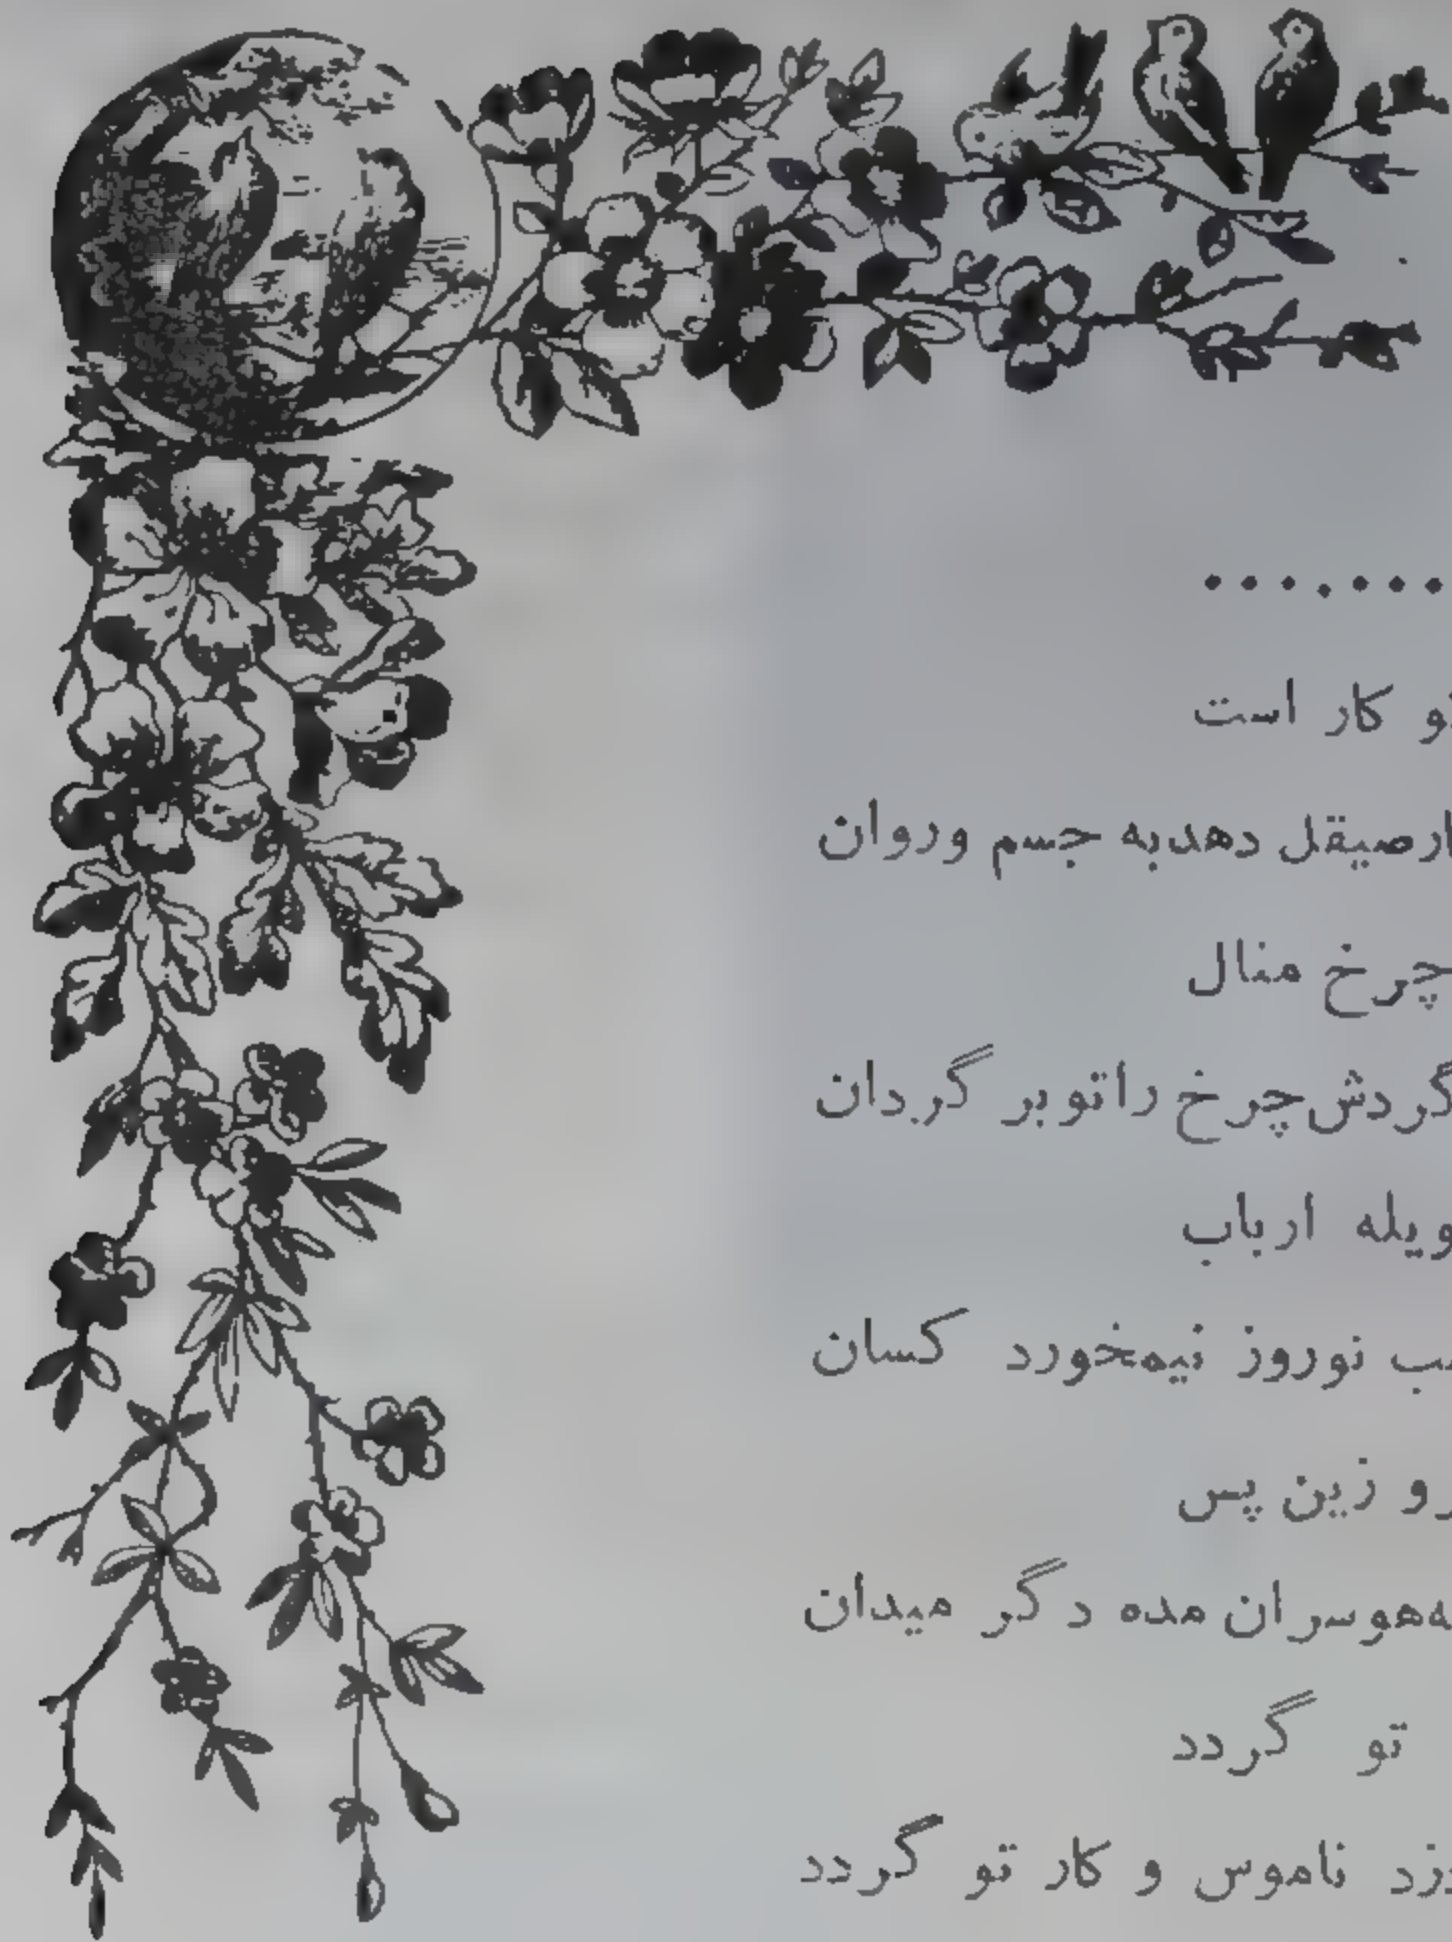 .......
کار است
صیقل دهدبه جسم وروان
چرخ منال
گردش چرخ راتو بر گردان
ارباب
نوروز نیمخورد کسان
زین پس
هوسران مده دگر میدان
تو گردد
ناموس و کار تو گردد